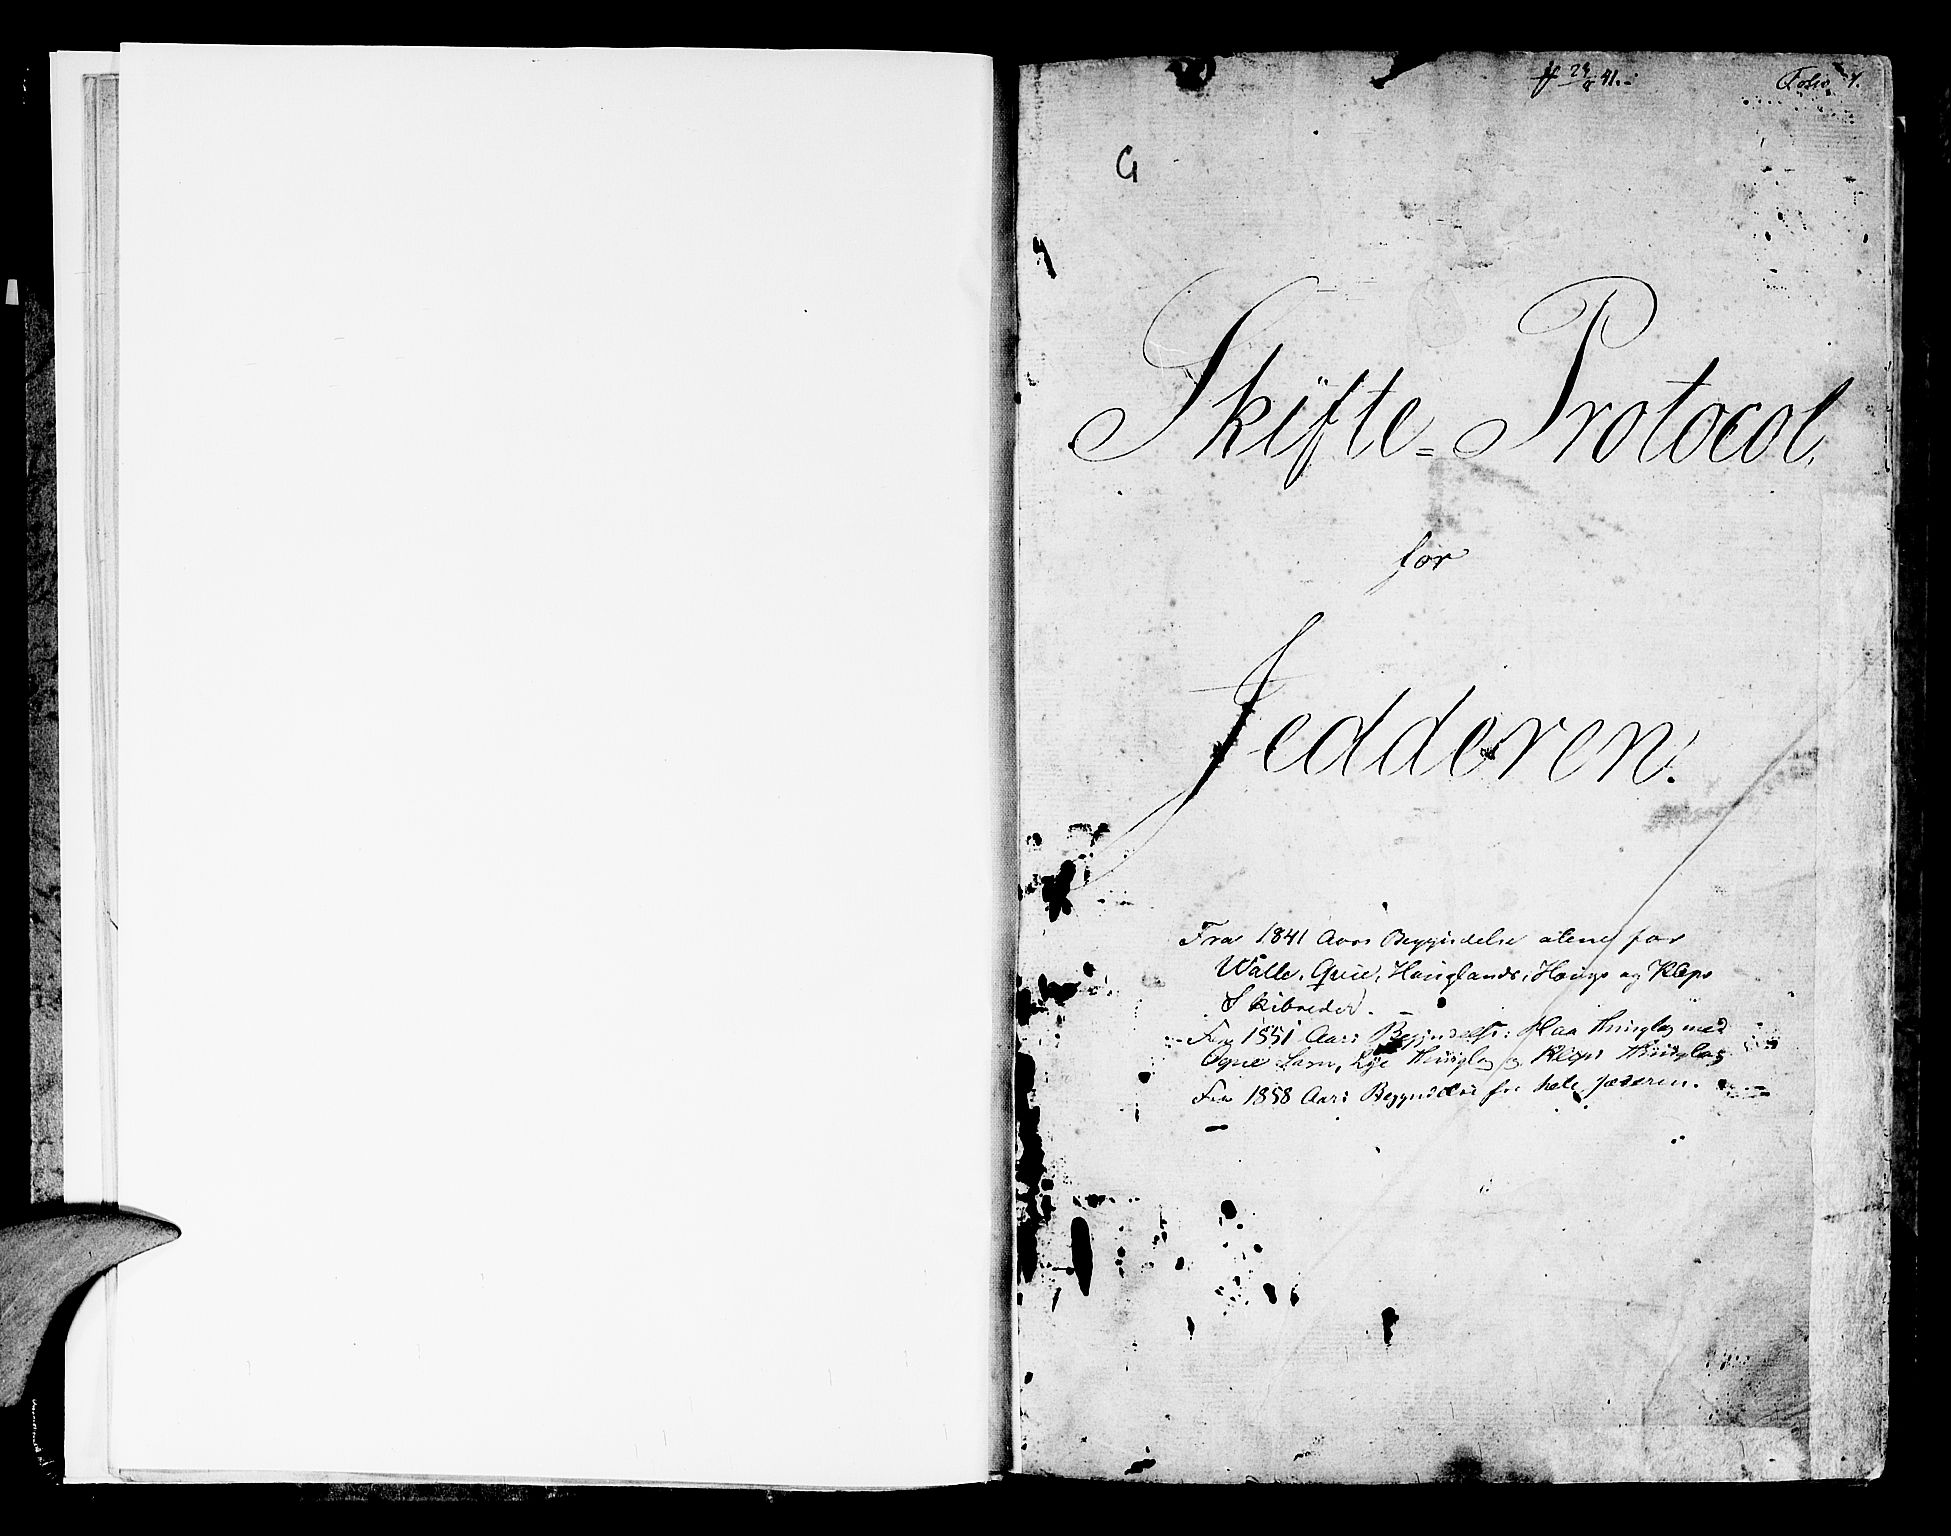 29/8 41.
Folio 1.
G
Skifte=Protocol,
for
Jedderen.
Fra 1841 Aars Begyndelse alene for
Walle, Quie, Hauglands, Haugs og Kleps
Skibreder.
Fra 1851 Aars Begyndelse: Haa Thinglag med
Ogne Sogn, Lye Thinglag og Kleps Thinglag
Fra 1858 Aars Begyndelse for hele Jæderen.